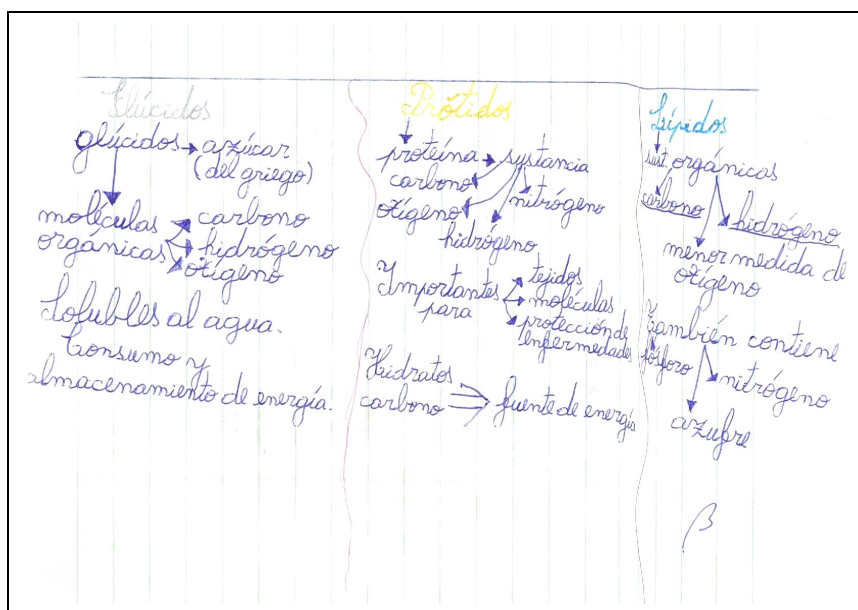 Glúcidos
glúcidos → azúcar
(del griego)
moléculas
orgánicas
carbono
hidrógeno
oxígeno
Solubles al agua.
Consumo y
almacenamiento de energía.
Prótidos
proteína → sustancia
carbono
oxígeno
nitrógeno
hidrógeno
Importantes
para
tejidos
moléculas
protección de
enfermedades
Hidratos
carbono
fuente de energía
Lípidos
sust. orgánicas
carbono
hidrógeno
menor medida de
oxígeno
Y también contiene
fósforo
nitrógeno
azufre
β